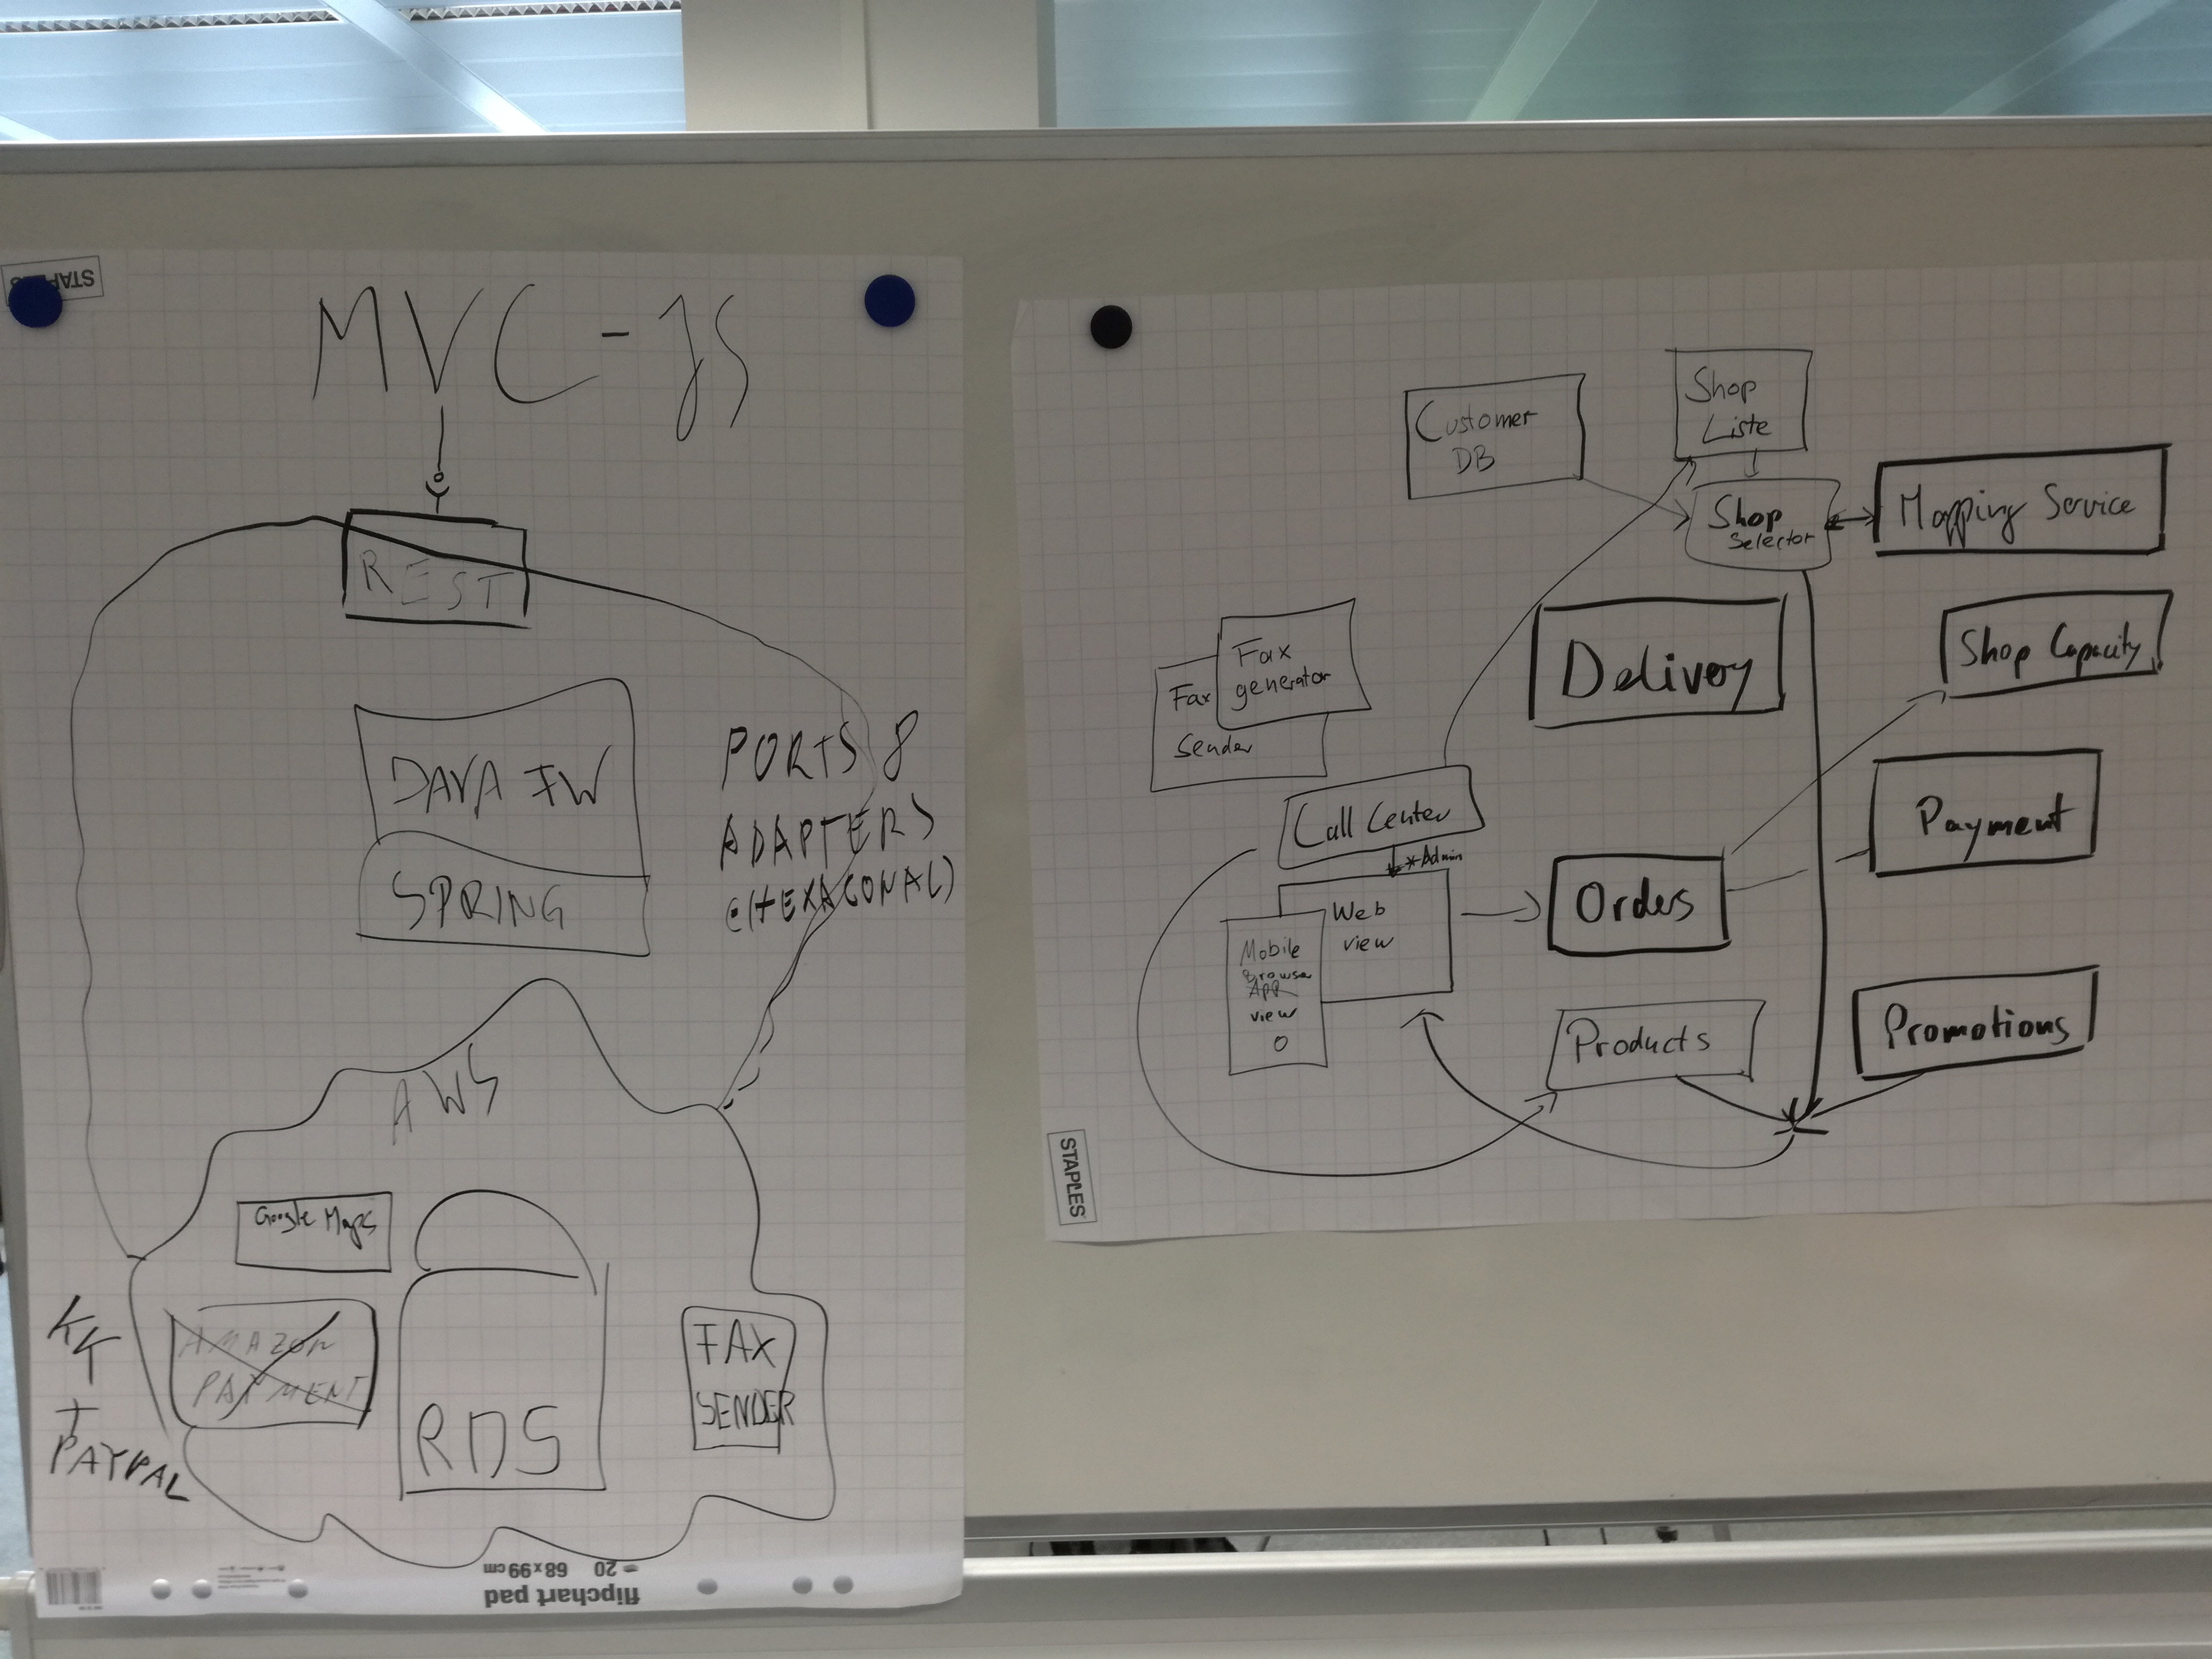 STAPLES
MVC-JS
REST
JAVA FW
SPRING
PORTS &
ADAPTERS
(HEXAGONAL)
AWS
Google Maps
AMAZON
PAYMENT
KK
+
PAYPAL
RDS
FAX
SENDER
20 68x99 cm
flipchart pad
Customer
DB
Shop
Liste
Shop
Selector
Mapping Service
Delivery
Shop Capacity
Fax
generator
Fax
Sender
Call Center
*Admin
Web
view
Mobile
Browser
App
view
Orders
Payment
Products
Promotions
STAPLES